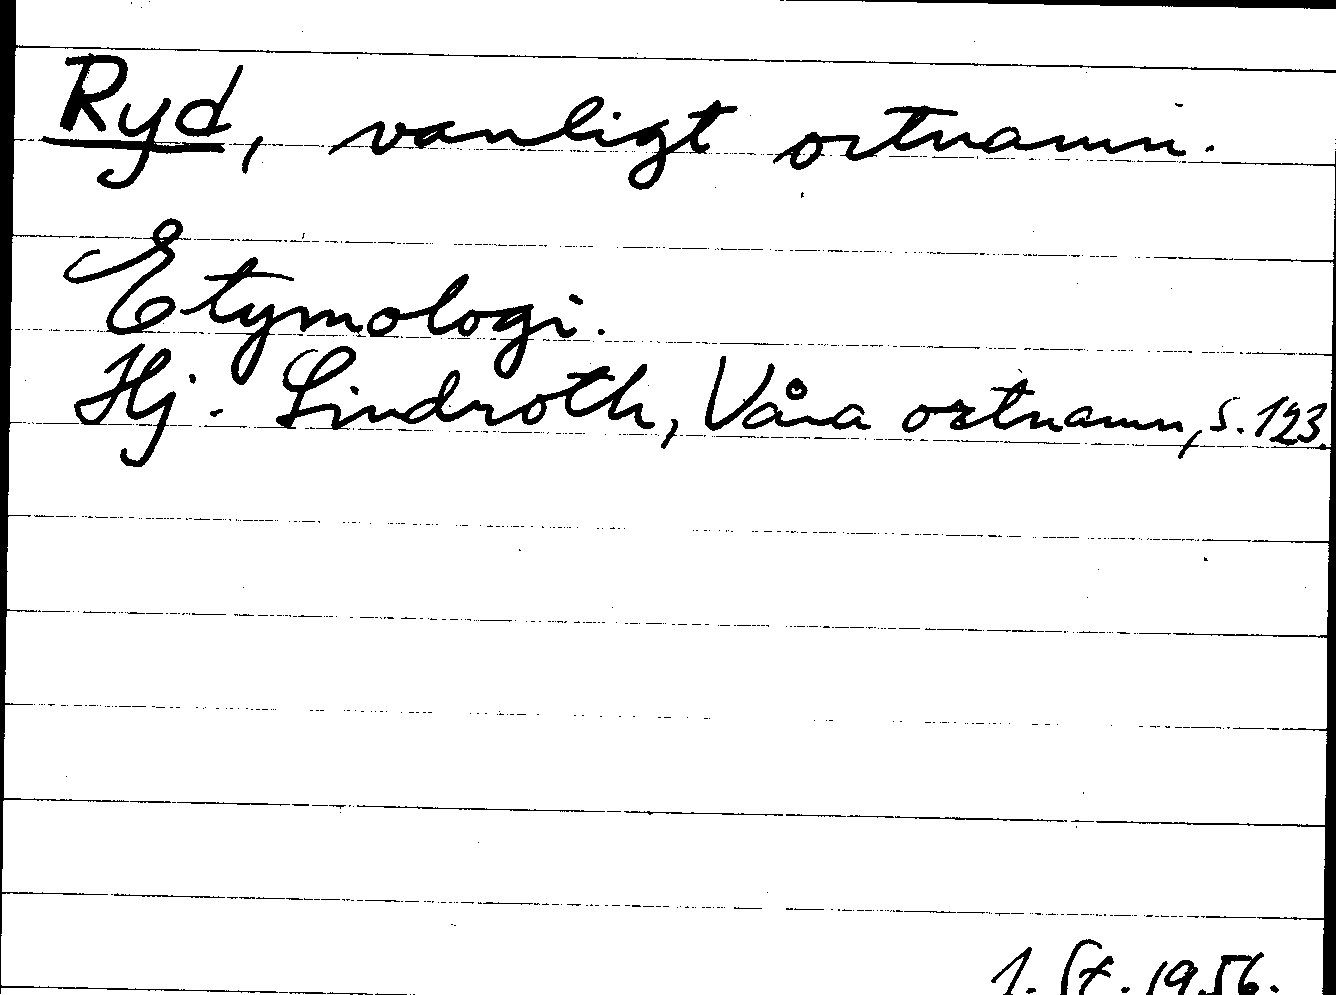 Ryd, vanligt ortnamn.
Etymologi.
Hj. Lindroth, Våra ortnamn, s. 123.
1. St. 1956.